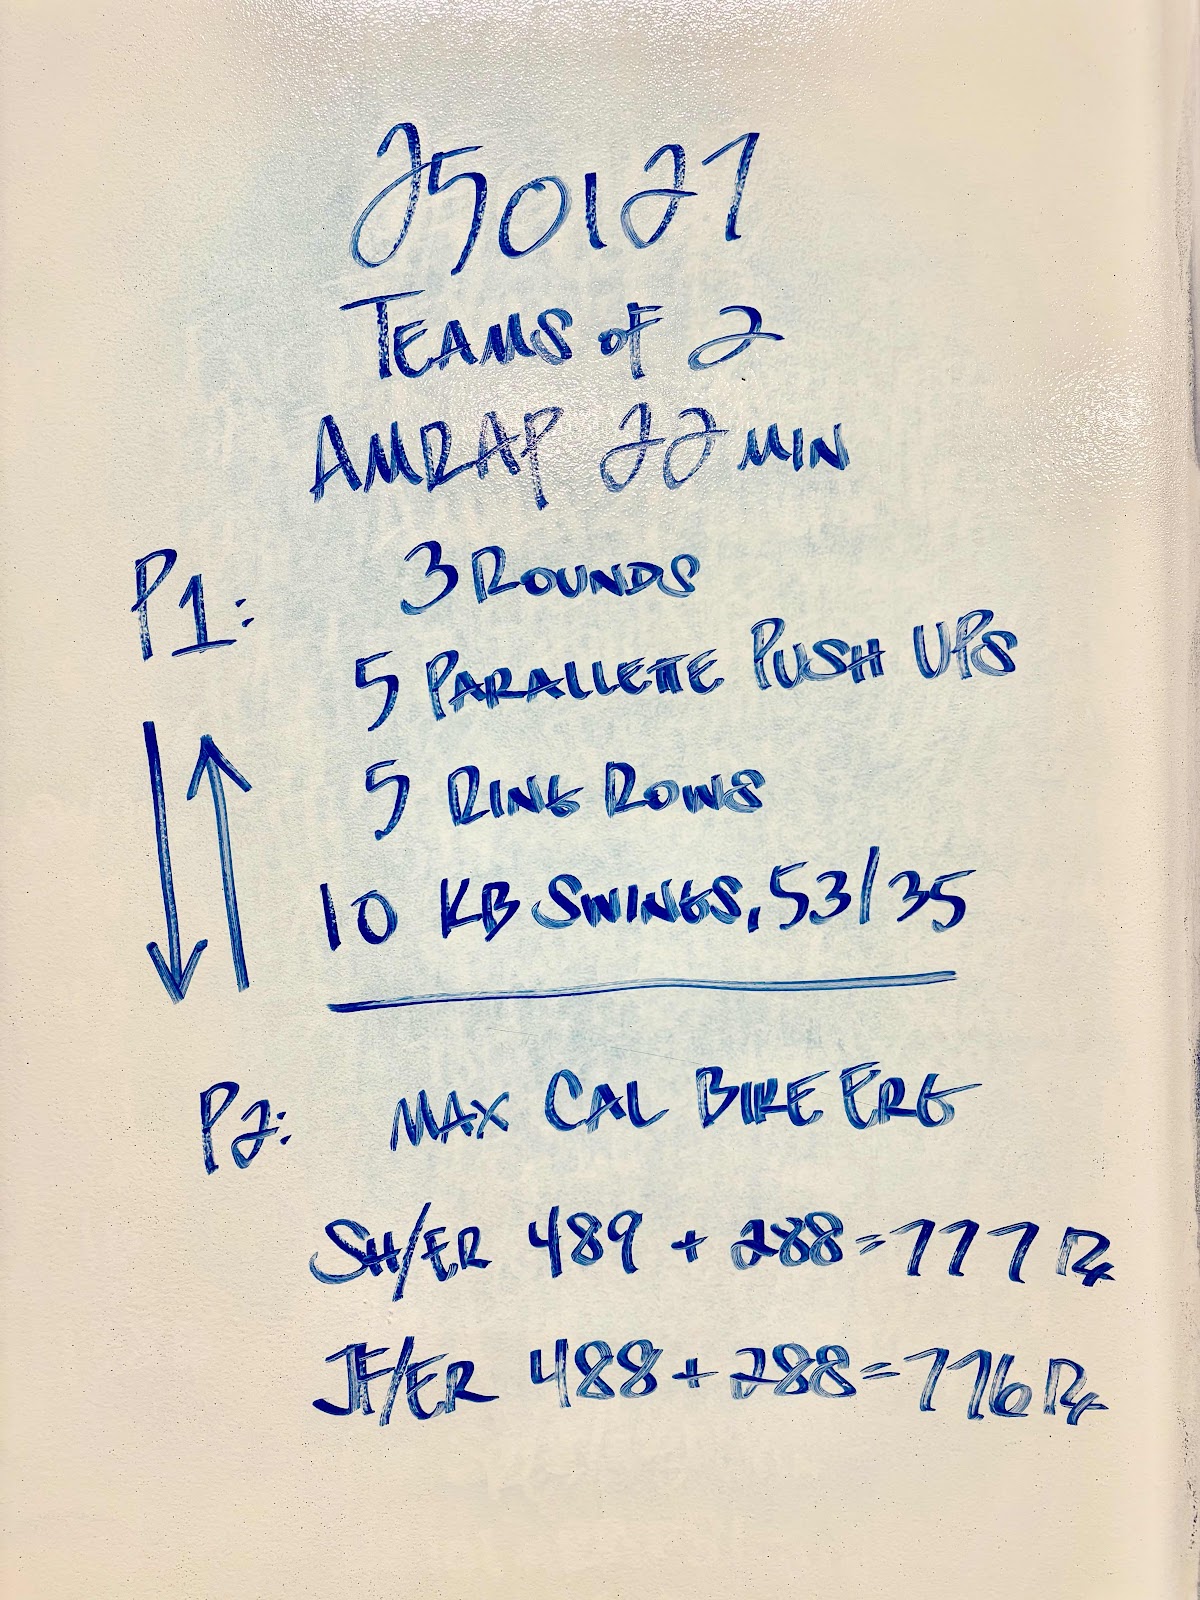 250127
TEAMS OF 2
AMRAP 22 MIN
P1: 3 ROUNDS
5 PARALLETTE PUSH UPS
5 RING ROWS
10 KB SWINGS, 53/35
P2: MAX CAL BIKE ERG
SH/ER 489 + 288 = 777 Rx
JF/ER 488 + 288 = 776 Rx